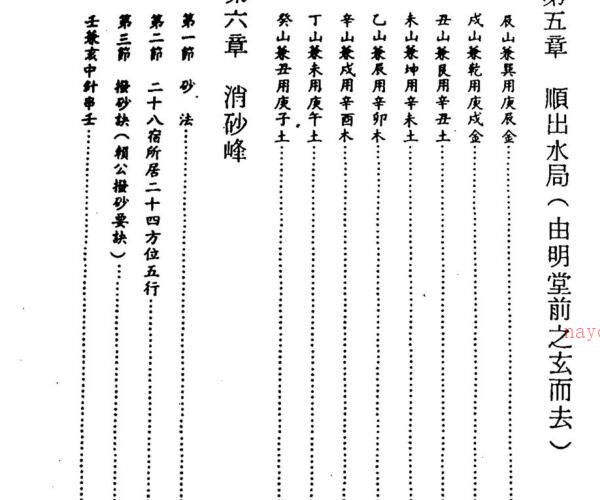 第五章 順出水局（由明堂前之玄而去）
辰山兼巽用庚辰金
戌山兼乾用庚戌金
丑山兼艮用辛丑土
未山兼坤用辛未土
乙山兼辰用辛卯木
辛山兼戌用辛酉木
丁山兼未用庚午土
癸山兼丑用庚子土
第六章 消砂峰
第一節 砂法
第二節 二十八宿所居二十四方位五行
第三節 撥砂訣（賴公撥砂要訣）
壬兼亥中針串壬
nayo